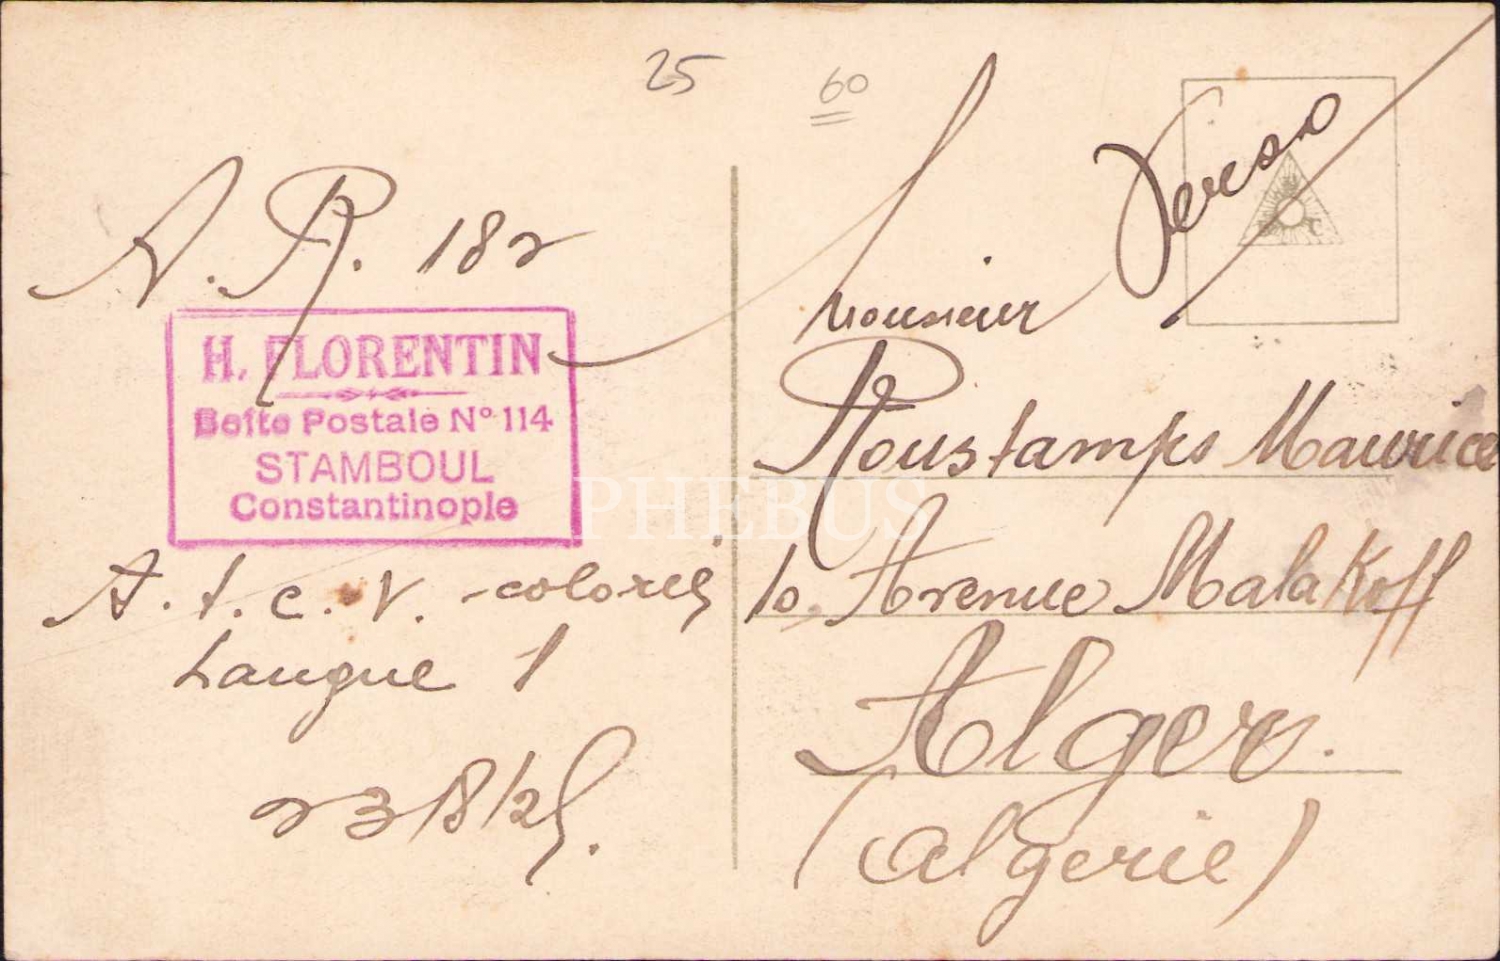 25
60
Verso
A. R. 182
H. FLORENTIN
Boîte Postale N° 114
STAMBOUL
Constantinople
A. t. c. V. - colorié
Langue 1
23/8/25.
Monsieur
Roustamps Maurice
10. Avenue Malakoff
Alger.
(Algérie)
PHEBUS